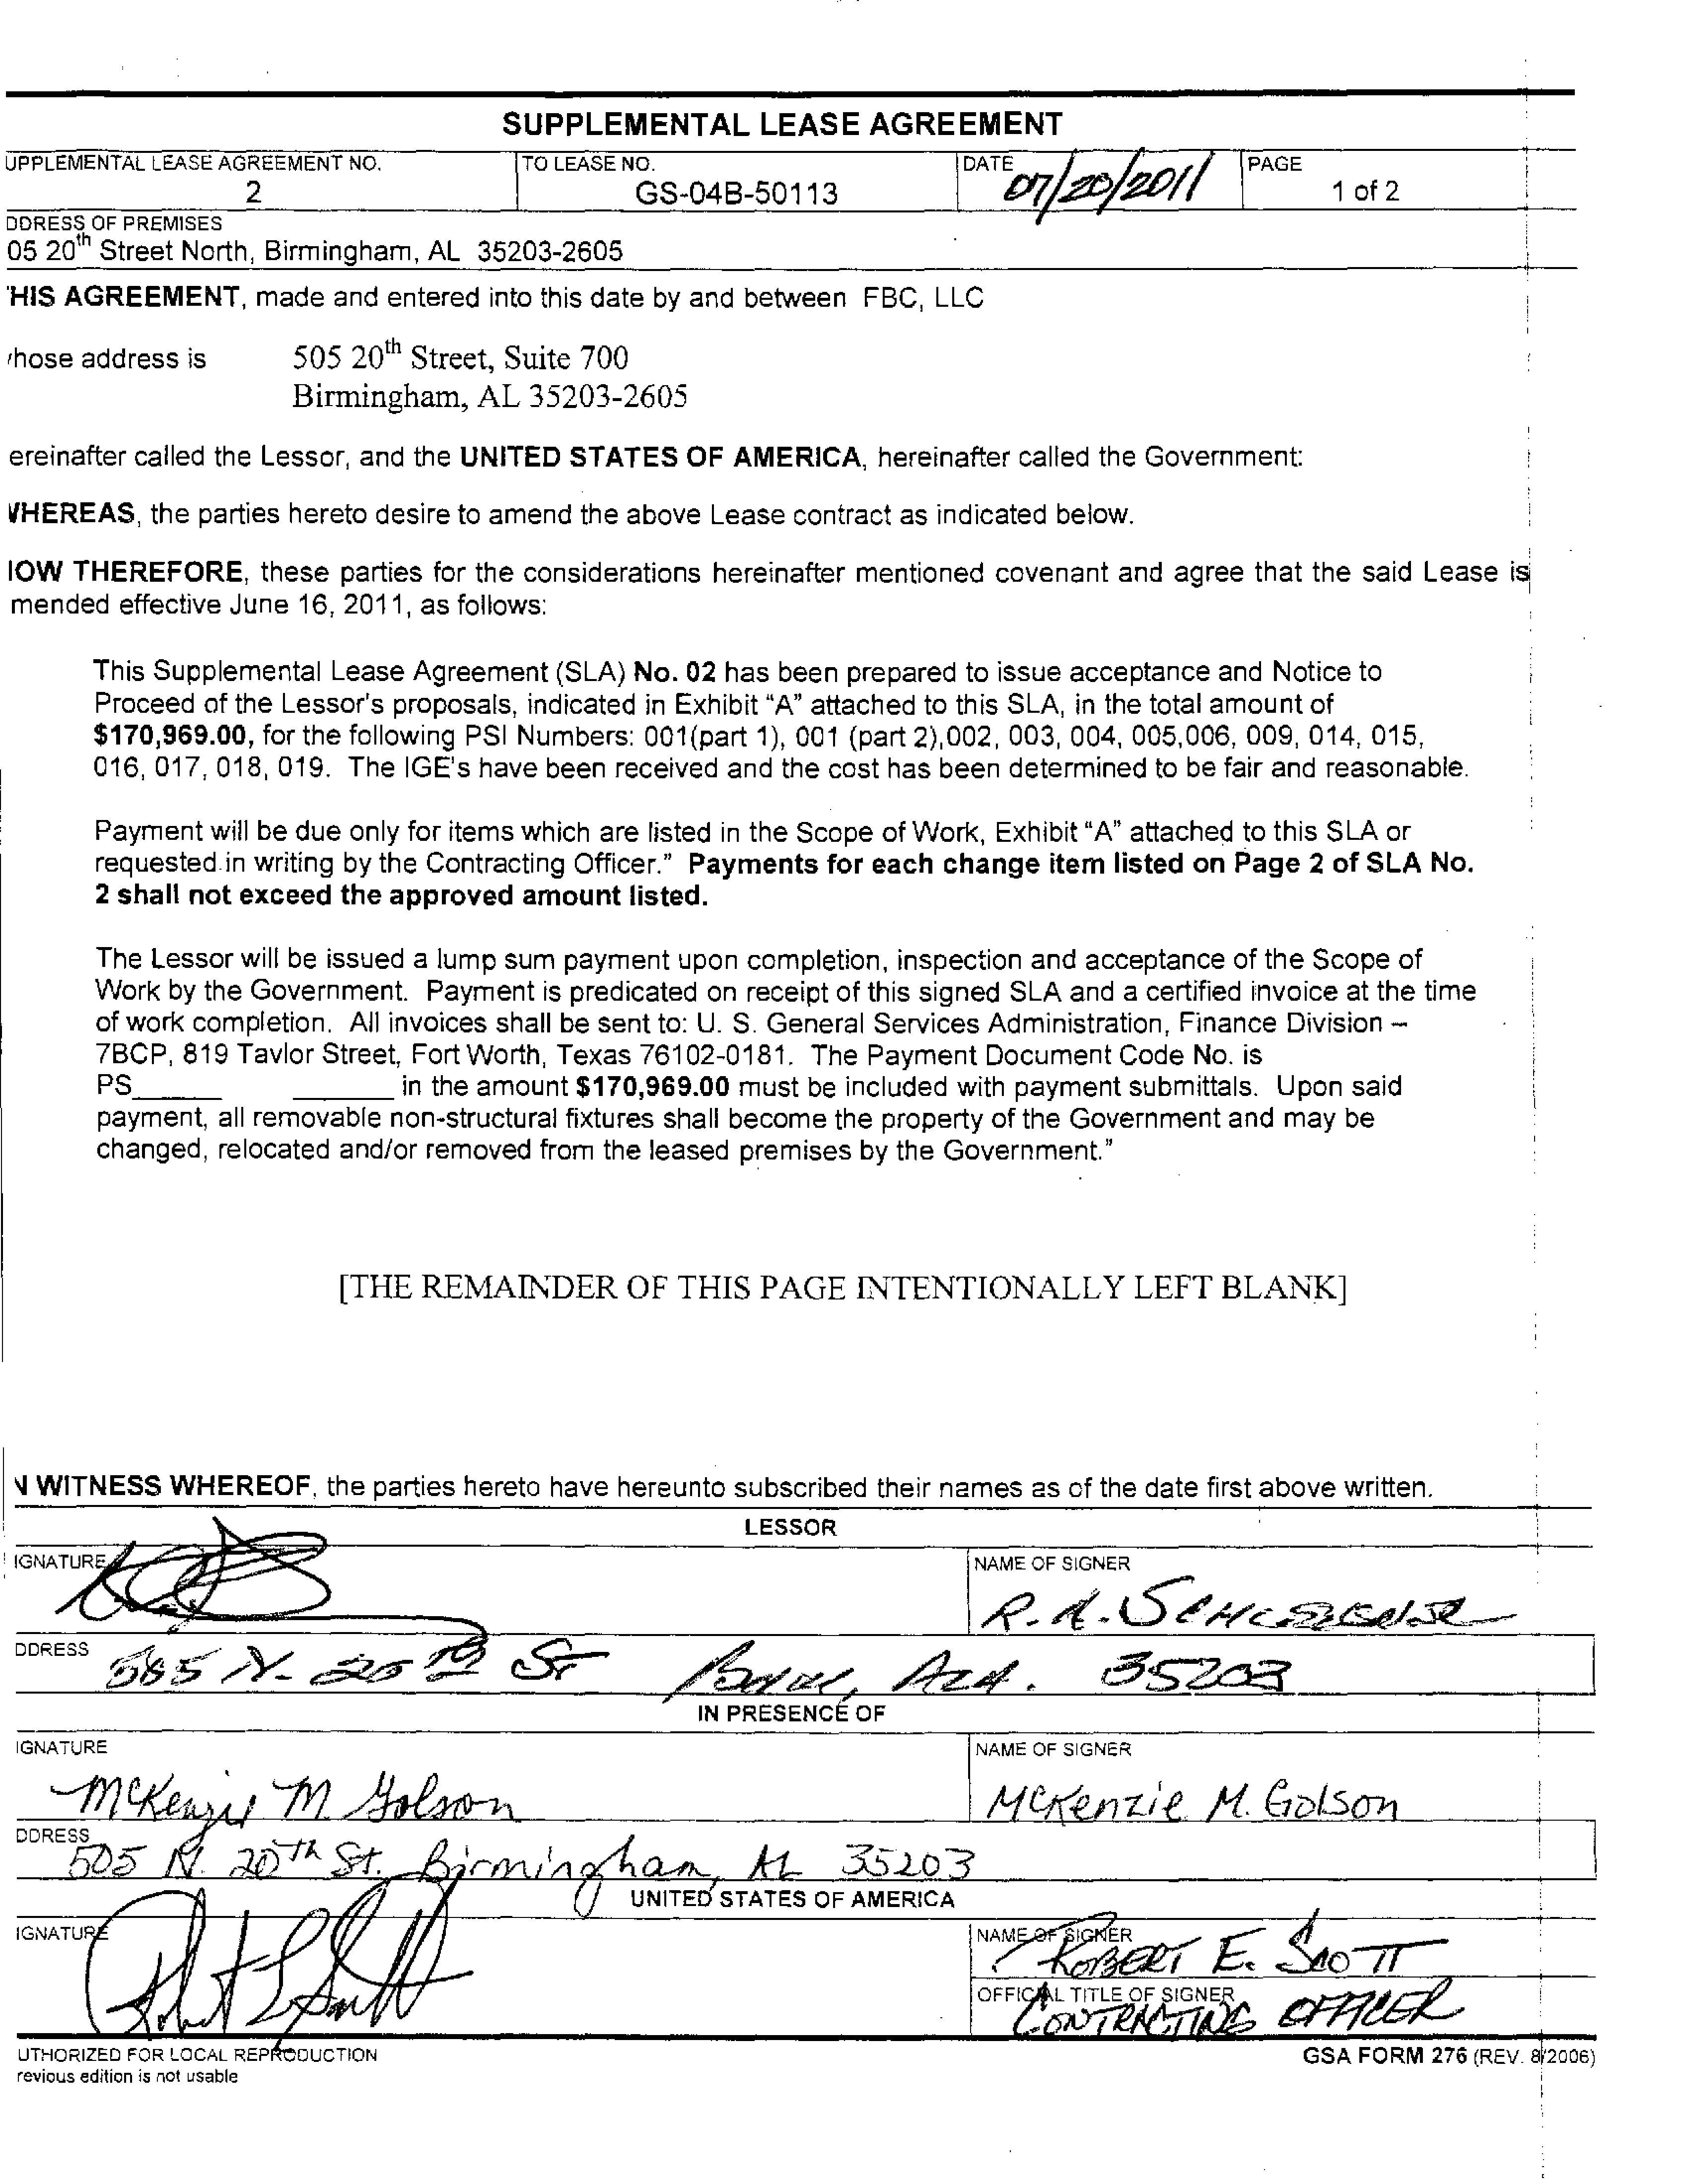 SUPPLEMENTAL LEASE AGREEMENT
UPPLEMENTAL LEASE AGREEMENT NO.
2
TO LEASE NO.
GS-04B-50113
DATE
07/20/2011
PAGE
1 of 2
DDRESS OF PREMISES
05 20th Street North, Birmingham, AL 35203-2605
HIS AGREEMENT, made and entered into this date by and between FBC, LLC
hose address is 505 20th Street, Suite 700
Birmingham, AL 35203-2605
ereinafter called the Lessor, and the UNITED STATES OF AMERICA, hereinafter called the Government:
WHEREAS, the parties hereto desire to amend the above Lease contract as indicated below.
IOW THEREFORE, these parties for the considerations hereinafter mentioned covenant and agree that the said Lease is
mended effective June 16, 2011, as follows:
This Supplemental Lease Agreement (SLA) No. 02 has been prepared to issue acceptance and Notice to
Proceed of the Lessor's proposals, indicated in Exhibit "A" attached to this SLA, in the total amount of
$170,969.00, for the following PSI Numbers: 001(part 1), 001 (part 2),002, 003, 004, 005,006, 009, 014, 015,
016, 017, 018, 019. The IGE's have been received and the cost has been determined to be fair and reasonable.
Payment will be due only for items which are listed in the Scope of Work, Exhibit "A" attached to this SLA or
requested in writing by the Contracting Officer." Payments for each change item listed on Page 2 of SLA No.
2 shall not exceed the approved amount listed.
The Lessor will be issued a lump sum payment upon completion, inspection and acceptance of the Scope of
Work by the Government. Payment is predicated on receipt of this signed SLA and a certified invoice at the time
of work completion. All invoices shall be sent to: U. S. General Services Administration, Finance Division –
7BCP, 819 Tavlor Street, Fort Worth, Texas 76102-0181. The Payment Document Code No. is
PS______ ______ in the amount $170,969.00 must be included with payment submittals. Upon said
payment, all removable non-structural fixtures shall become the property of the Government and may be
changed, relocated and/or removed from the leased premises by the Government."
[THE REMAINDER OF THIS PAGE INTENTIONALLY LEFT BLANK]
N WITNESS WHEREOF, the parties hereto have hereunto subscribed their names as of the date first above written.
LESSOR
IGNATURE
NAME OF SIGNER
R.A.
DDRESS
505 N. 20th St Ala. 35203
IN PRESENCE OF
IGNATURE
McKenzie M Golson
NAME OF SIGNER
McKenzie M. Golson
DDRESS
505 N. 20th St. Birmingham, AL 35203
UNITED STATES OF AMERICA
IGNATURE
Robert E Scott
NAME OF SIGNER
ROBERT E. SCOTT
OFFICIAL TITLE OF SIGNER
CONTRACTING OFFICER
UTHORIZED FOR LOCAL REPRODUCTION
revious edition is not usable
GSA FORM 276 (REV. 8/2006)